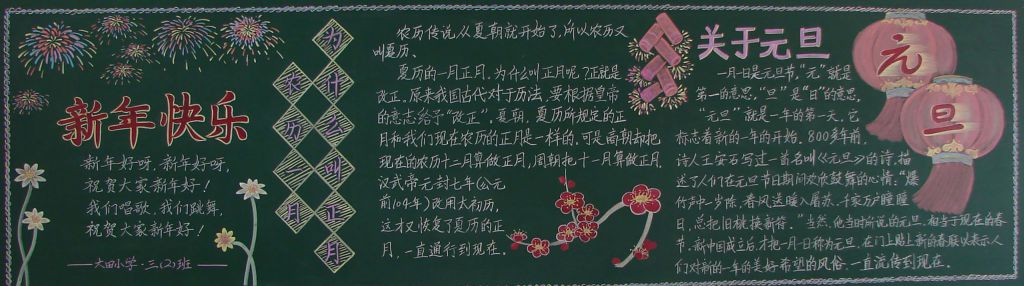 新年快乐
新年好呀,新年好呀,
祝贺大家新年好!
我们唱歌,我们跳舞,
祝贺大家新年好!
大田小学·三(2)班
农历一月
为什么叫正月
农历传说从夏朝就开始了,所以农历又
叫夏历。
夏历的一月正月。为什么叫正月呢?正就是
改正。原来我国古代对于历法,要根据皇帝
的意志给予“改正”。夏朝,夏历所规定的正
月和我们现在农历的正月是一样的,可是商朝却把
现在的农历十二月算做正月,周朝把十一月算做正月
汉武帝元封七年(公元
前104年)改用太初历,
这才又恢复了夏历的正
月,一直通行到现在。
关于元旦
一月一日是元旦节,“元”就是
第一的意思,“旦”是“日”的意思,
“元旦”就是一年的第一天,它
标志着新的一年的开始。800多年前,
诗人王安石写过一首名叫《元旦》的诗,描
述了人们在元旦节日期间欢欣鼓舞的心情:“爆
竹声中一岁除,春风送暖入屠苏。千家万户曈曈
日,总把旧桃换新符。”当然,他当时所说的元旦,相当于现在的春
节,新中国成立后,才把一月一日称为元旦,在门上贴上新的春联以表示人
们对新的一年的美好希望的风俗,一直流传到现在。
元
旦